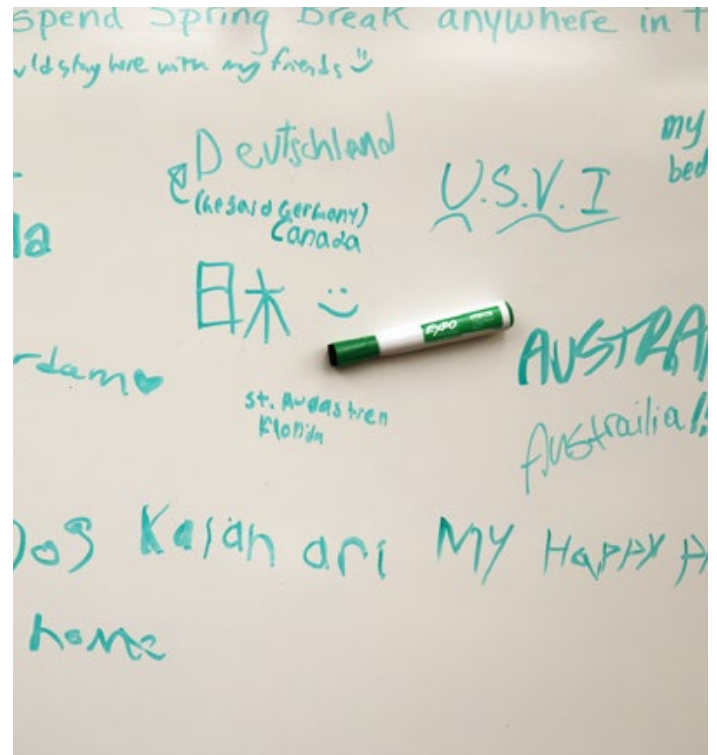 spend Spring Break anywhere in t
uld stay here with my friends
Deutschland
my
bed
U.S.V.I
(he said Germany)
Canada
la
日木
EXPO
AUSTRA
rdam
st. Augastren
Florida
Austrailia!!
Dos Kasan ari My Happy P
home